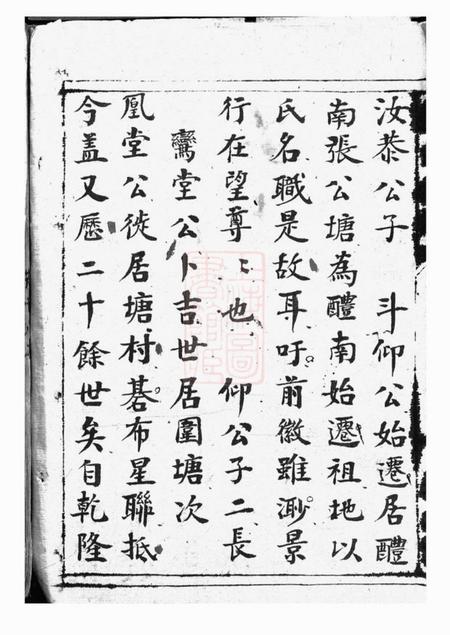 汝恭公子 斗仰公始遷居醴
南張公塘為醴南始遷祖地以
氏名職是故耳吁前徽雖渺景
行在望尊〻也 仰公子二長
鸞堂公卜吉世居圍塘次
凰堂公徙居塘村碁布星聯抵
今盖又歷二十餘世矣自乾隆